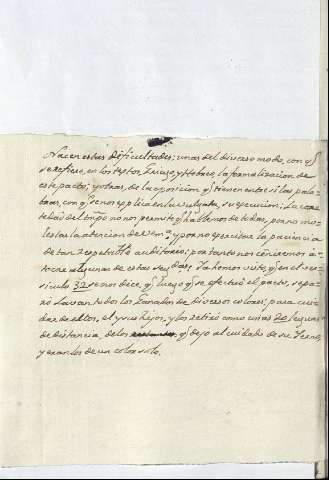 Nacen estas dificultades; unas del diverso modo, con q̃
se refiere, en los textos, Griego, y Hebreo, la formalizacion de
este pacto; y otras, de la oposicion q̃ tienen entre si las pala-
bras, con q̃ se nos explica en la Vulgata, su ejecucion. La cor-
tedad del tpõ no nos permite q̃ hablemos de todas, por no mo-
lestar la atencion de Vm.ˢ y por no exercitar la paciencia
de tan respetable auditorio; por tanto nos ceñiremos á
tocar algunas de estas
Ya hemos visto, q̃ en el ver-
siculo 32 se nos dice, q̃ luego q̃ se efectuó el pacto, sepa-
ró Lavan todos los Ganados de diversos colores, para cui-
dar de ellos, el y sus hijos, y los retiró como unas 20 leguas
de distancia, de los q̃ dejó al cuidado de su Yerno,
y eran los de un color solo.